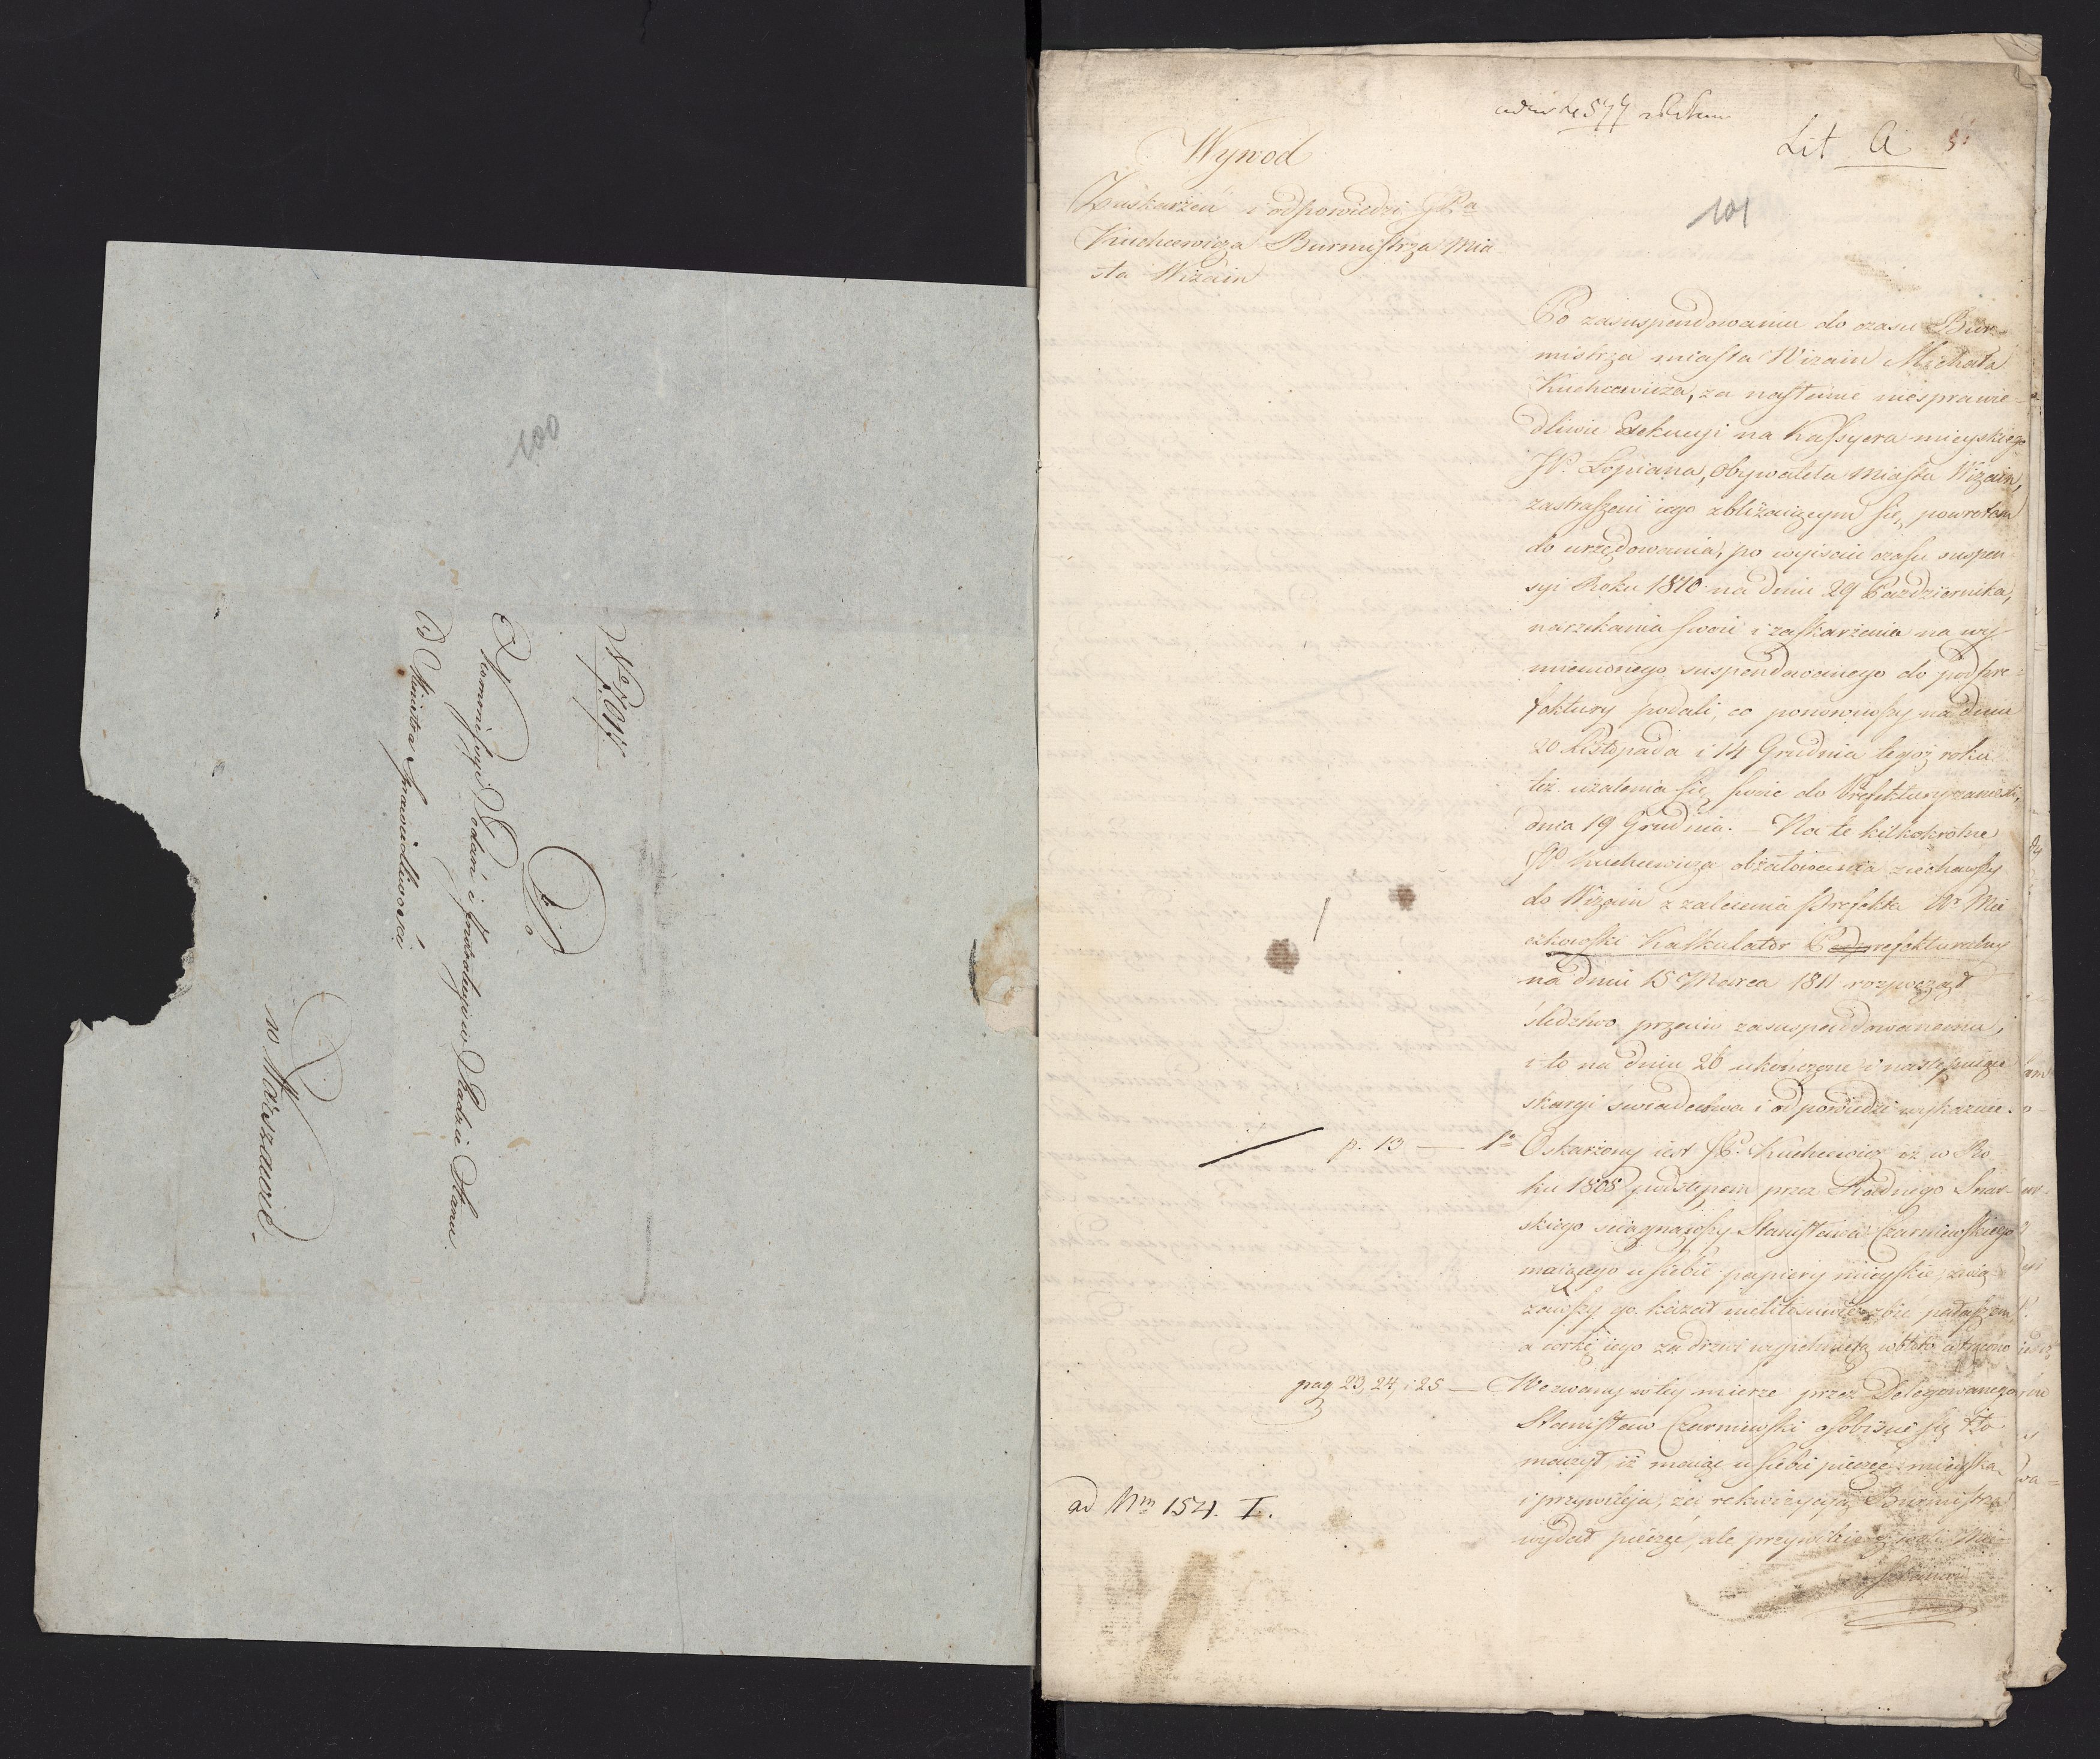 100
Nro 1017
Do
Kommissyi Podań i Instrukcyi w Radzie Stanu
Od Ministra Sprawiedliwości
w Warszawie.
577
Lit A
101
Wywod
Zaskarżeń i odpowiedzi JPa
Kuchcewicza Burmistrza Mia
sta Wizain
Po zasuspendowaniu do czasu Bur=
mistrza miasta Wizain Michała
Kuchcewicza, za nasłanie niesprawie
dliwie Exekucyi na Kassyera mieyskiego
JP. Lopiana, Obywatela Miasta Wizain,
zastraszeni iego zbliżaiącym się powrotem
do urzędowania, po wyiściu czasu suspen
syi Roku 1810 na dniu 29 Października,
narzekania swoie i zaskarżenia na wy
mienionego suspendowanego do podpre=
fektury podali, co ponowiwszy na dniu
20 Listopada i 14 Grudnia tegoż roku
też użalenia się swoie do Prefektury zanieśli,
dnia 19 Grudnia. – Na te kilkokrotne
JP Kuchcewicza obżałowania ziechawszy
do Wizain z zalecenia Prefekta Wr Mie
czkowski Kalkulator Prefekturalny
na dniu 15 Marca 1811 rozpoczął
śledztwo przeciw zasuspendowanemu,
i to na dniu 26 ukończone i następuiące
skargi świadectwa i odpowiedzi wykazuie.
p. 13 — 1o Oskarżony iest JP. Kuchcewicz iż w Ro
ku 1808 podstępem przez Radnego
skiego sciągnąwszy Stanisława Czarniewskiego
maiącego u siebie papiery mieyskie, zwią
zawszy go kazał nielitościwie zbić pałaszem
a corkę iego za drzwi wypchniętą w błoto wtrącono
pag 23, 24, i 25 — Wezwany w tey mierze przez Delegowanego
Stanisław Czarniewski osobiście się tło
maczył, iż maiąc u siebie pieczęć mieyską
i przywileja, za rekwizycyą Burmistrza
wydał pieczęć, ale przywileie
ad Nrm 154. I.